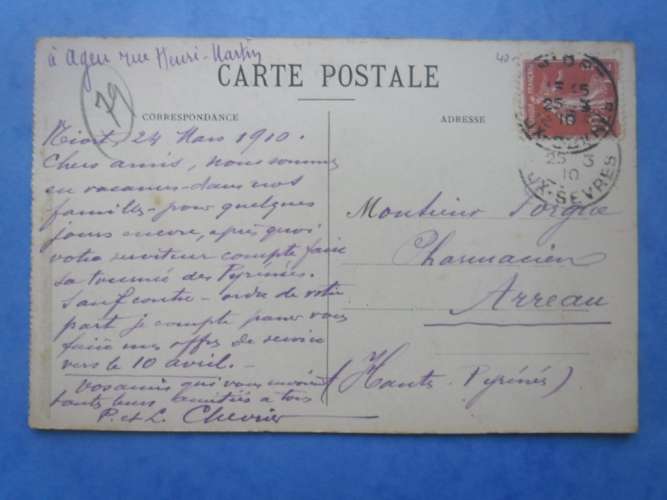 à Agen rue Henri-Martin
CARTE POSTALE
79
CORRESPONDANCE
ADRESSE
Niort, 24 Mars 1910.
Chers amis, nous sommes
en vacances dans nos
familles pour quelques
jours encore, après quoi
votre serviteur compte faire
sa tournée des Pyrénées.
Sauf contre-ordre de votre
part je compte passer vous
faire mes offres de service
vers le 10 avril.-
Vos amis qui vous envoient
toutes leurs amitiés à tous
P. et L. Chevrier
Monsieur
Pharmacien
Arreau
(Hautes Pyrénées)
25 3
10
UX-SEVRES